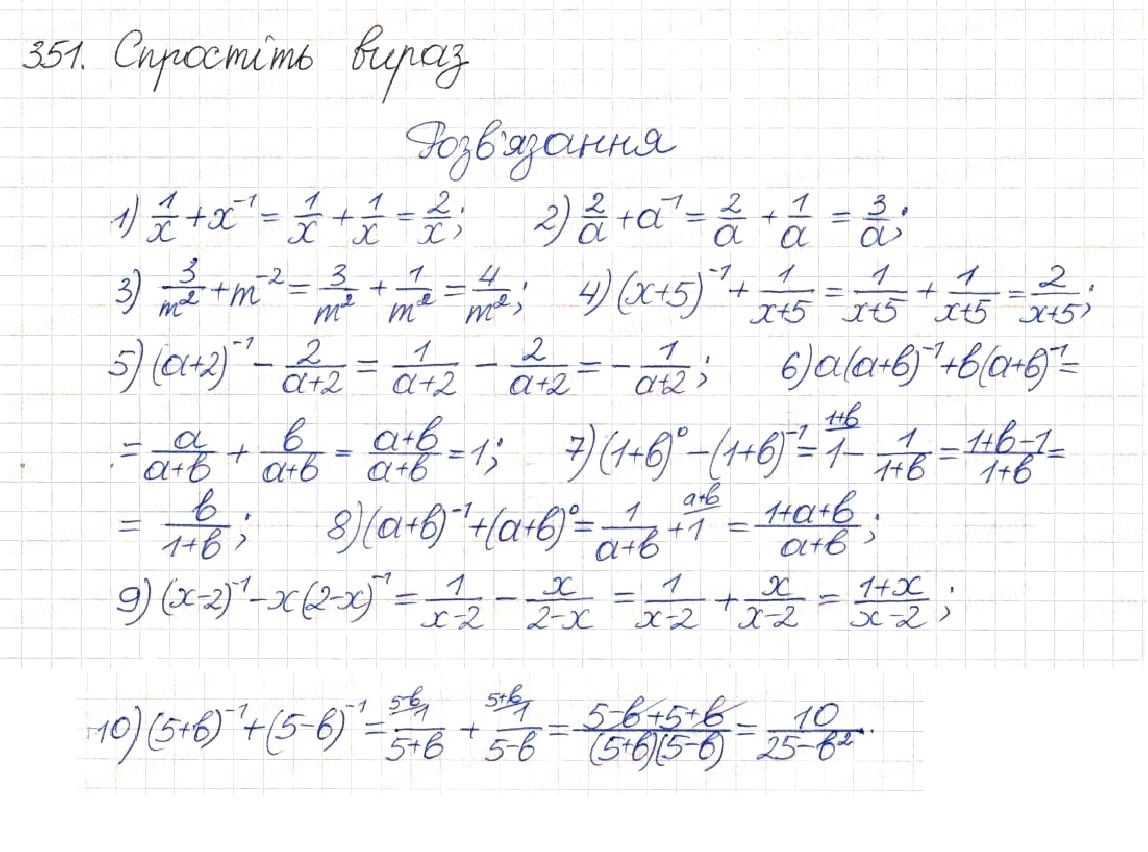 351. Спростіть вираз
Розв'язання
1) 1/x + x⁻¹ = 1/x + 1/x = 2/x; 2) 2/a + a⁻¹ = 2/a + 1/a = 3/a;
3) 3/m² + m⁻² = 3/m² + 1/m² = 4/m²; 4) (x+5)⁻¹ + 1/(x+5) = 1/(x+5) + 1/(x+5) = 2/(x+5);
5) (a+2)⁻¹ − 2/(a+2) = 1/(a+2) − 2/(a+2) = −1/(a+2); 6) a(a+b)⁻¹ + b(a+b)⁻¹ =
= a/(a+b) + b/(a+b) = (a+b)/(a+b) = 1; 7) (1+b)⁰ − (1+b)⁻¹ = 1^(1+b) − 1/(1+b) = (1+b−1)/(1+b) =
= b/(1+b); 8) (a+b)⁻¹ + (a+b)⁰ = 1/(a+b) + 1^(a+b) = (1+a+b)/(a+b);
9) (x−2)⁻¹ − x(2−x)⁻¹ = 1/(x−2) − x/(2−x) = 1/(x−2) + x/(x−2) = (1+x)/(x−2);
10) (5+b)⁻¹ + (5−b)⁻¹ = ^(5−b) 1/(5+b) + ^(5+b) 1/(5−b) = (5−b+5+b)/((5+b)(5−b)) = 10/(25−b²).